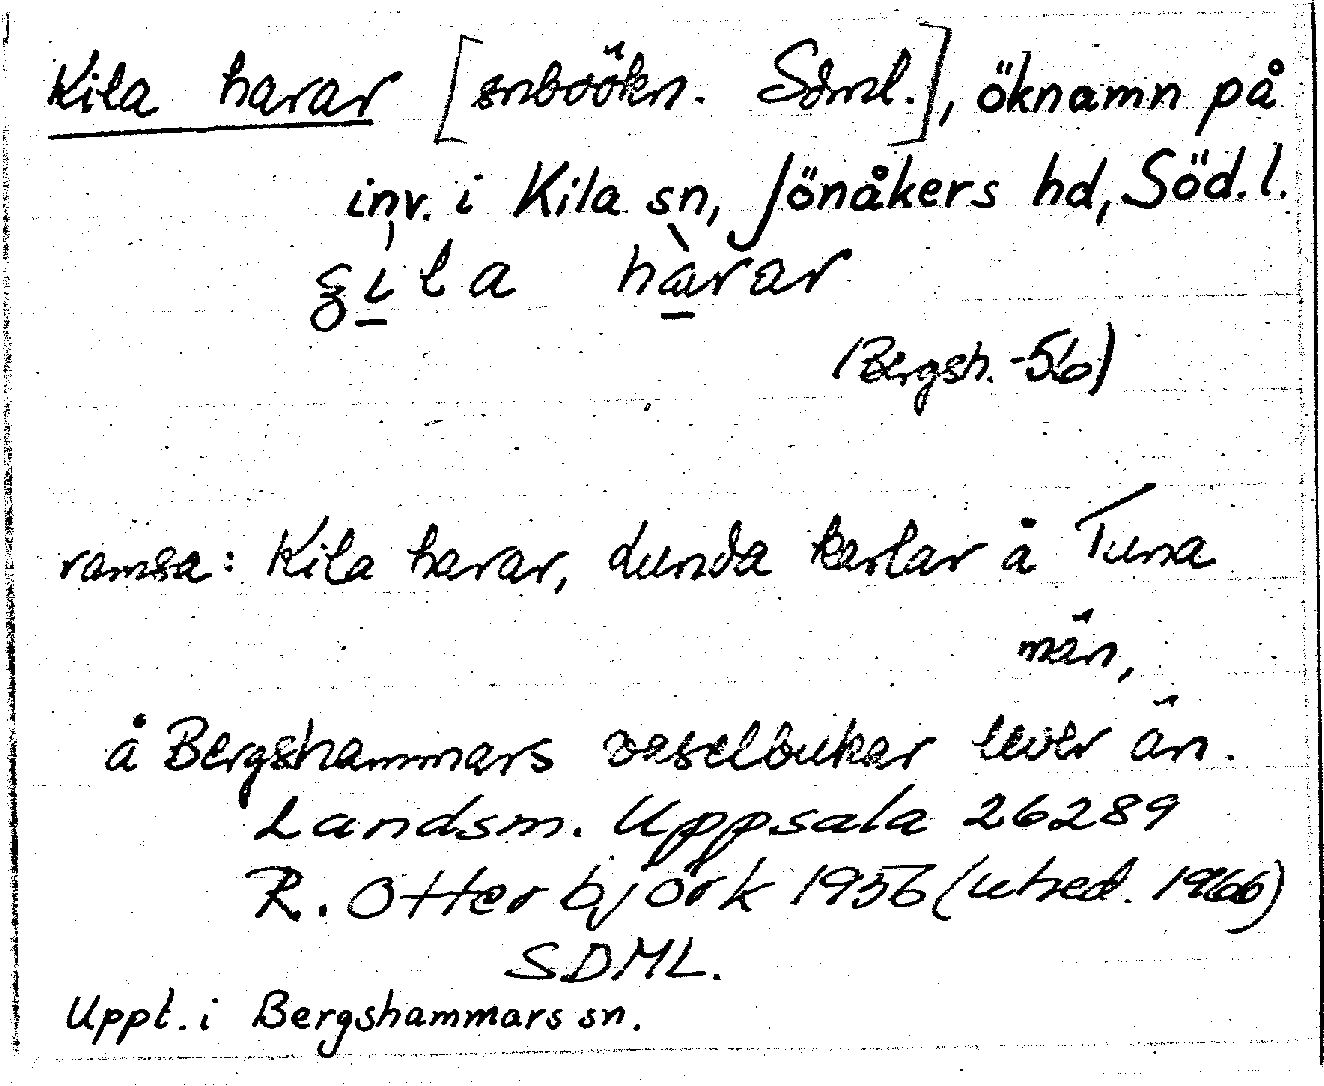 Kila harar [snboökn. Sdml.], öknamn på
inv. i Kila sn, Jönåkers hd, Söd.l.
harar
(Bergsh. -56)
ramsa: Kila harar, Lunda karlar å Tuna
män,
å Bergshammars vaselbukar lever än.
Landsm. Uppsala 26289
R. Otterbjörk 1956 (utred. 1966)
SDML.
Uppt. i Bergshammars sn.